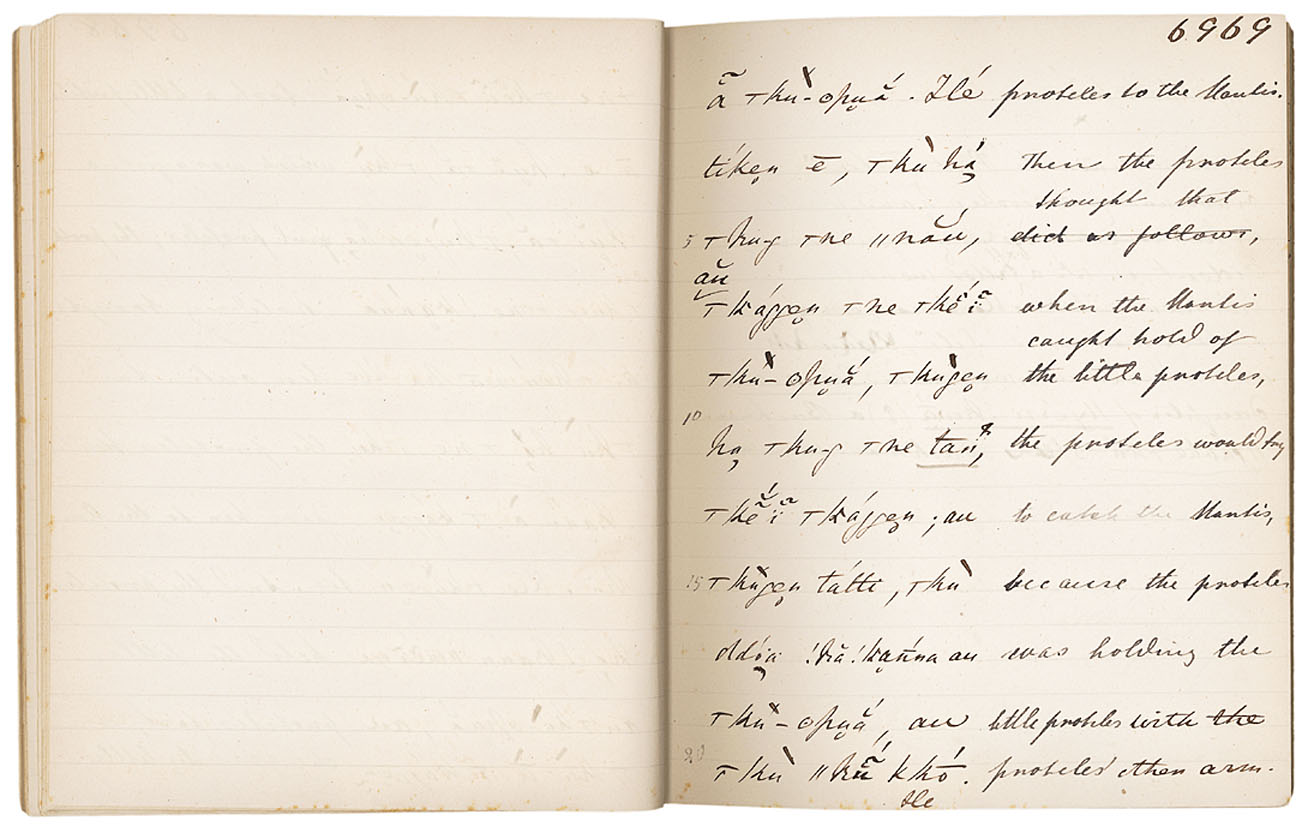 6969
ã ͳkù-opuắ. Ïlé proteles to the Mantis.
tíken ē, ͳkù há Then the proteles
thought that
5 ͳku-g ͳne ǁnắu, did as follows,
au
ͳkággen ͳne ͳkĕ́ ĩ̆ when the Mantis
caught hold of
ͳkù-opuắ, ͳkùgen the little proteles,
10
ha ͳku-g ͳne tañ, the proteles would try
ͳkĕ́ ĩ̆ ͳkággen; au to catch the Mantis,
15 ͳkùgen tátti, ͳkù because the proteles
ddóa !kă!kañna au was holding the
ͳkù-opuắ, au little proteles with the
20 ͳkù ǁkũ̆́ kkó. proteles' other arm.